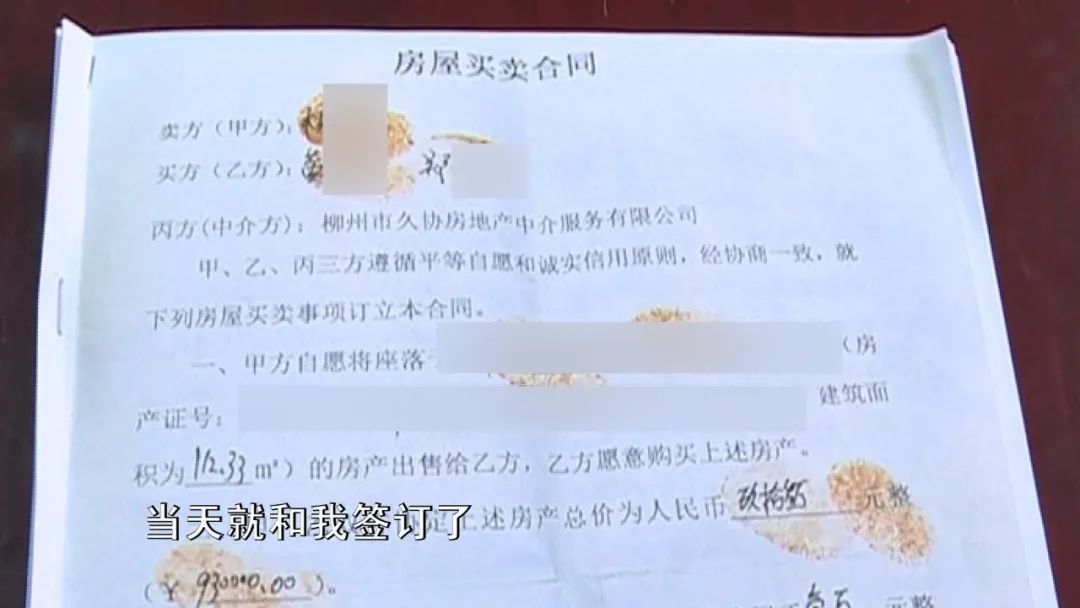 房屋买卖合同
卖方（甲方）：
买方（乙方）： 郑
丙方(中介方)：柳州市久协房地产中介服务有限公司
甲、乙、丙三方遵循平等自愿和诚实信用原则，经协商一致，就
下列房屋买卖事项订立本合同。
一、甲方自愿将座落 （房
产证号： 建筑面
积为112.33m²）的房产出售给乙方，乙方愿意购买上述房产。
定上述房产总价为人民币 玖拾 元整
当天就和我签订了
（￥930000.00）。
元整